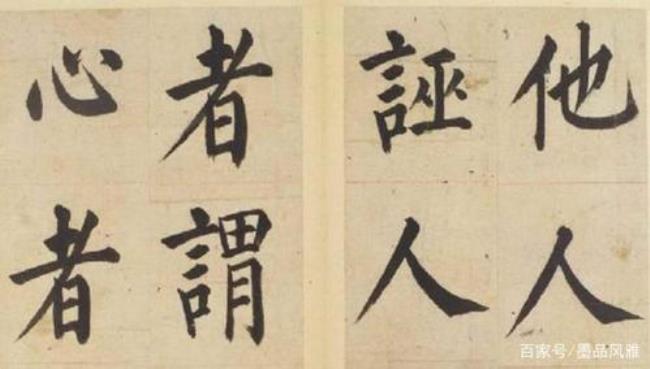 他人
誣人
者謂
心者
百家号/墨品风雅